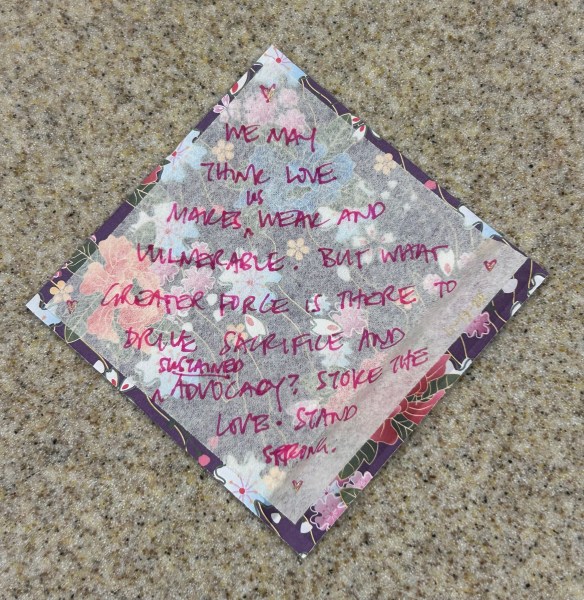 WE MAY
THINK LOVE
US
MAKES ^ WEAK AND
VULNERABLE. BUT WHAT
GREATER FORCE IS THERE TO
DRIVE SACRIFICE AND
SUSTAINED
^ ADVOCACY? STOKE THE
LOVE. STAND
STRONG.